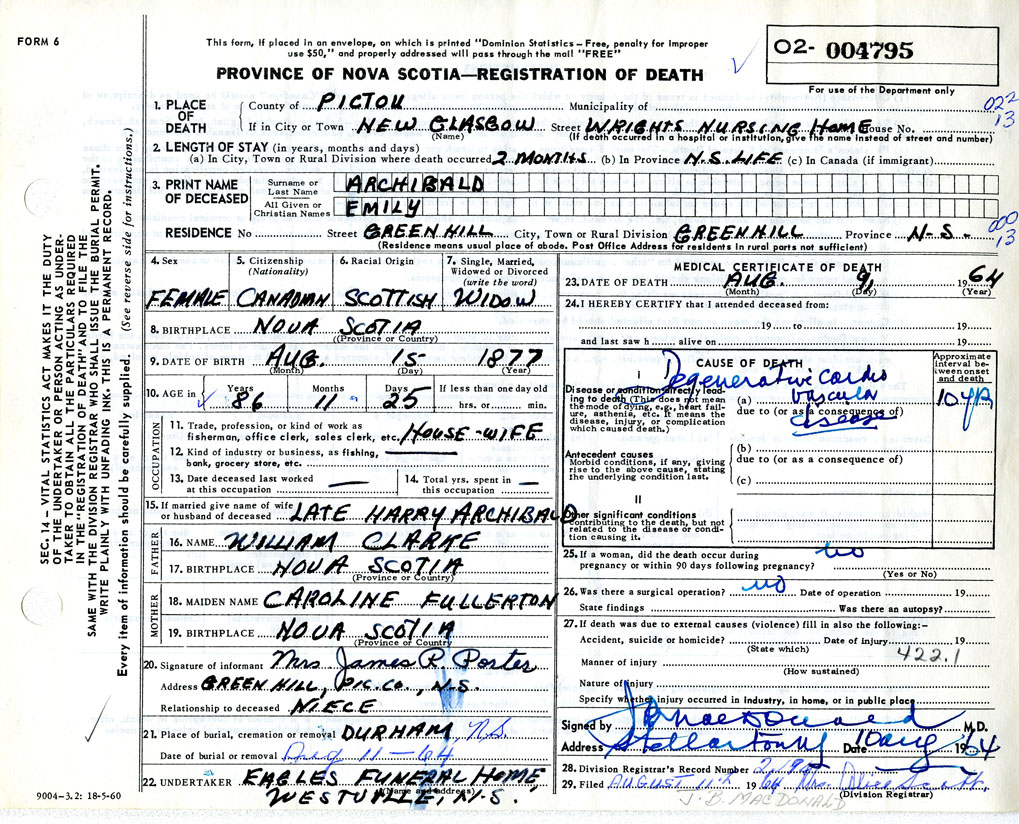 FORM 6
This form, if placed in an envelope, on which is printed "Dominion Statistics – Free, penalty for improper
use $50," and properly addressed will pass through the mail "FREE"
PROVINCE OF NOVA SCOTIA—REGISTRATION OF DEATH
02- 004795
For use of the Department only
022
13
1. PLACE OF DEATH
County of PICTOU Municipality of
If in City or Town NEW GLASGOW Street WRIGHTS NURSING HOME House No.
(Name) (If death occurred in a hospital or institution, give the name instead of street and number)
2. LENGTH OF STAY (in years, months and days)
(a) In City, Town or Rural Division where death occurred 2 MONTHS (b) In Province N.S. LIFE (c) In Canada (if immigrant)
3. PRINT NAME OF DECEASED
Surname or Last Name ARCHIBALD
All Given or Christian Names EMILY
000
13
RESIDENCE No Street GREEN HILL City, Town or Rural Division GREEN HILL Province N-S-
(Residence means usual place of abode. Post Office Address for residents in rural parts not sufficient)
SEC. 14 – VITAL STATISTICS ACT MAKES IT THE DUTY
OF THE UNDERTAKER OR PERSON ACTING AS UNDER-
TAKER TO OBTAIN ALL THE PARTICULARS REQUIRED
IN THE "REGISTRATION OF DEATH" AND TO FILE THE
SAME WITH THE DIVISION REGISTRAR WHO SHALL ISSUE THE BURIAL PERMIT.
WRITE PLAINLY WITH UNFADING INK. THIS IS A PERMANENT RECORD.
Every item of information should be carefully supplied. (See reverse side for instructions.)
4. Sex
FEMALE
5. Citizenship
(Nationality)
CANADIAN
6. Racial Origin
SCOTTISH
7. Single, Married,
Widowed or Divorced
(write the word)
WIDOW
8. BIRTHPLACE NOVA SCOTIA
(Province or Country)
9. DATE OF BIRTH AUG. 15 1877
(Month) (Day) (Year)
10. AGE in Years 86 Months 11 Days 25 If less than one day old
hrs. or min.
OCCUPATION
11. Trade, profession, or kind of work as
fisherman, office clerk, sales clerk, etc. HOUSE-WIFE
12. Kind of industry or business, as fishing,
bank, grocery store, etc.
13. Date deceased last worked
at this occupation —
14. Total yrs. spent in
this occupation —
15. If married give name of wife
or husband of deceased LATE HARRY ARCHIBALD
FATHER
16. NAME WILLIAM CLARKE
17. BIRTHPLACE NOVA SCOTIA
(Province or Country)
MOTHER
18. MAIDEN NAME CAROLINE FULLERTON
19. BIRTHPLACE NOVA SCOTIA
(Province or Country)
20. Signature of informant Mrs James R. Porter
Address GREEN HILL, PIC. CO., N.S.
Relationship to deceased NIECE
21. Place of burial, cremation or removal DURHAM, N.S.
Date of burial or removal Aug 11 – 64
22. UNDERTAKER EAGLES FUNERAL HOME
(Name and address)
WESTVILLE, N.S.
9004–3.2: 18-5-60
MEDICAL CERTIFICATE OF DEATH
23. DATE OF DEATH AUG. 9, 1964
(Month) (Day) (Year)
24. I HEREBY CERTIFY that I attended deceased from:
19 to 19
and last saw h alive on 19
CAUSE OF DEATH
Approximate interval between onset and death
I
Disease or condition directly lead-
ing to death (This does not mean
the mode of dying, e.g., heart fail-
ure, asthenia, etc. It means the
disease, injury, or complication
which caused death.)
(a) Degenerative cardio
vascular
due to (or as a consequence of)
disease
10 yr
Antecedent causes
Morbid conditions, if any, giving
rise to the above cause, stating
the underlying condition last.
(b)
due to (or as a consequence of)
(c)
II
Other significant conditions
contributing to the death, but not
related to the disease or condi-
tion causing it.
25. If a woman, did the death occur during
pregnancy or within 90 days following pregnancy? no
(Yes or No)
26. Was there a surgical operation? no Date of operation 19
State findings Was there an autopsy?
27. If death was due to external causes (violence) fill in also the following:–
Accident, suicide or homicide? Date of injury 19
(State which)
422.1
Manner of injury
(How sustained)
Nature of injury
Specify whether injury occurred in industry, in home, or in public place
Signed by J B MacDonald M.D.
Address Stellarton NS Date 10 aug 1964
28. Division Registrar's Record Number
29. Filed AUGUST 11th 1964 Mrs
(Division Registrar)
J. B. MACDONALD